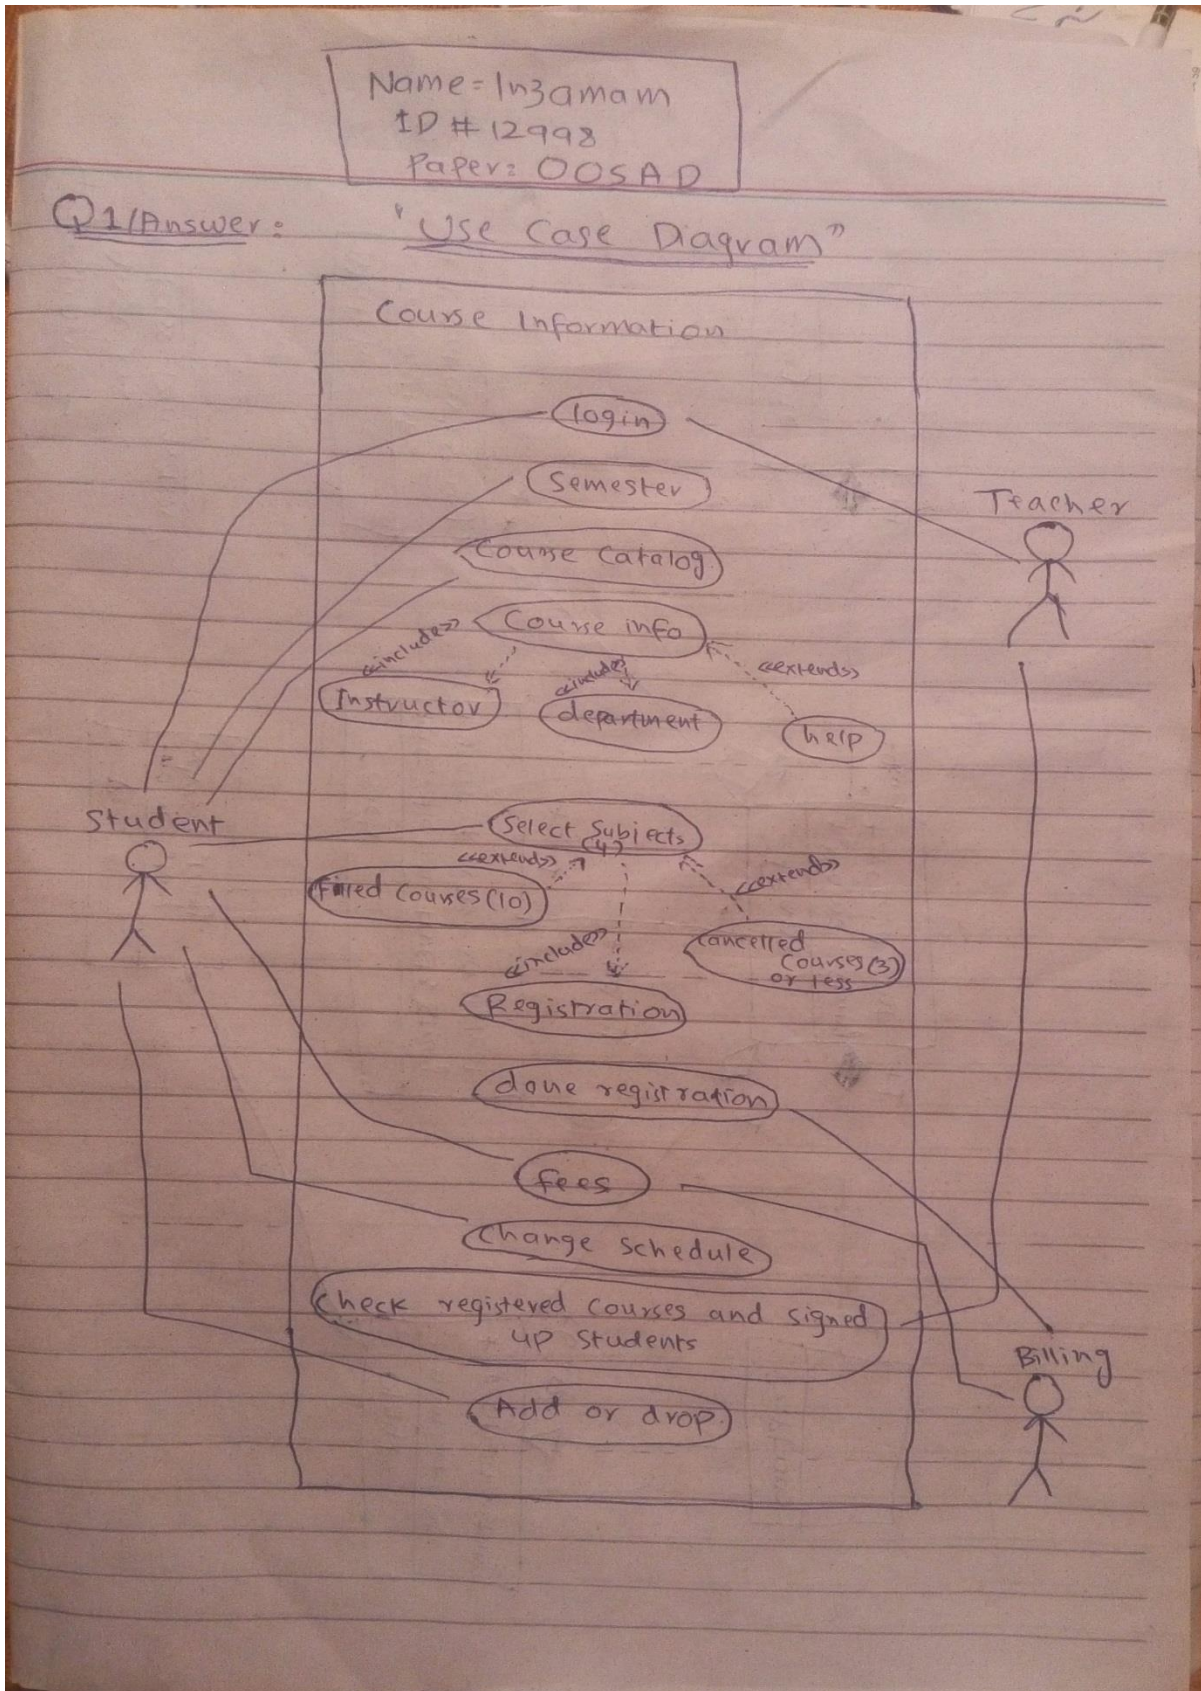 Name = Inzamam
ID # 12998
Paper: OOSAD
Q1/Answer:
"Use Case Diagram"
Course Information
login
Semester
Teacher
Course Catalog
Course info
<<include>>
<<include>>
<<extends>>
Instructor
department
help
Student
Select Subjects
(4)
<<extends>>
<<extends>>
courses (10)
cancelled
courses (3)
or less
<<include>>
Registration
done registration
fees
change schedule
Check registered courses and signed
up students
Billing
Add or drop